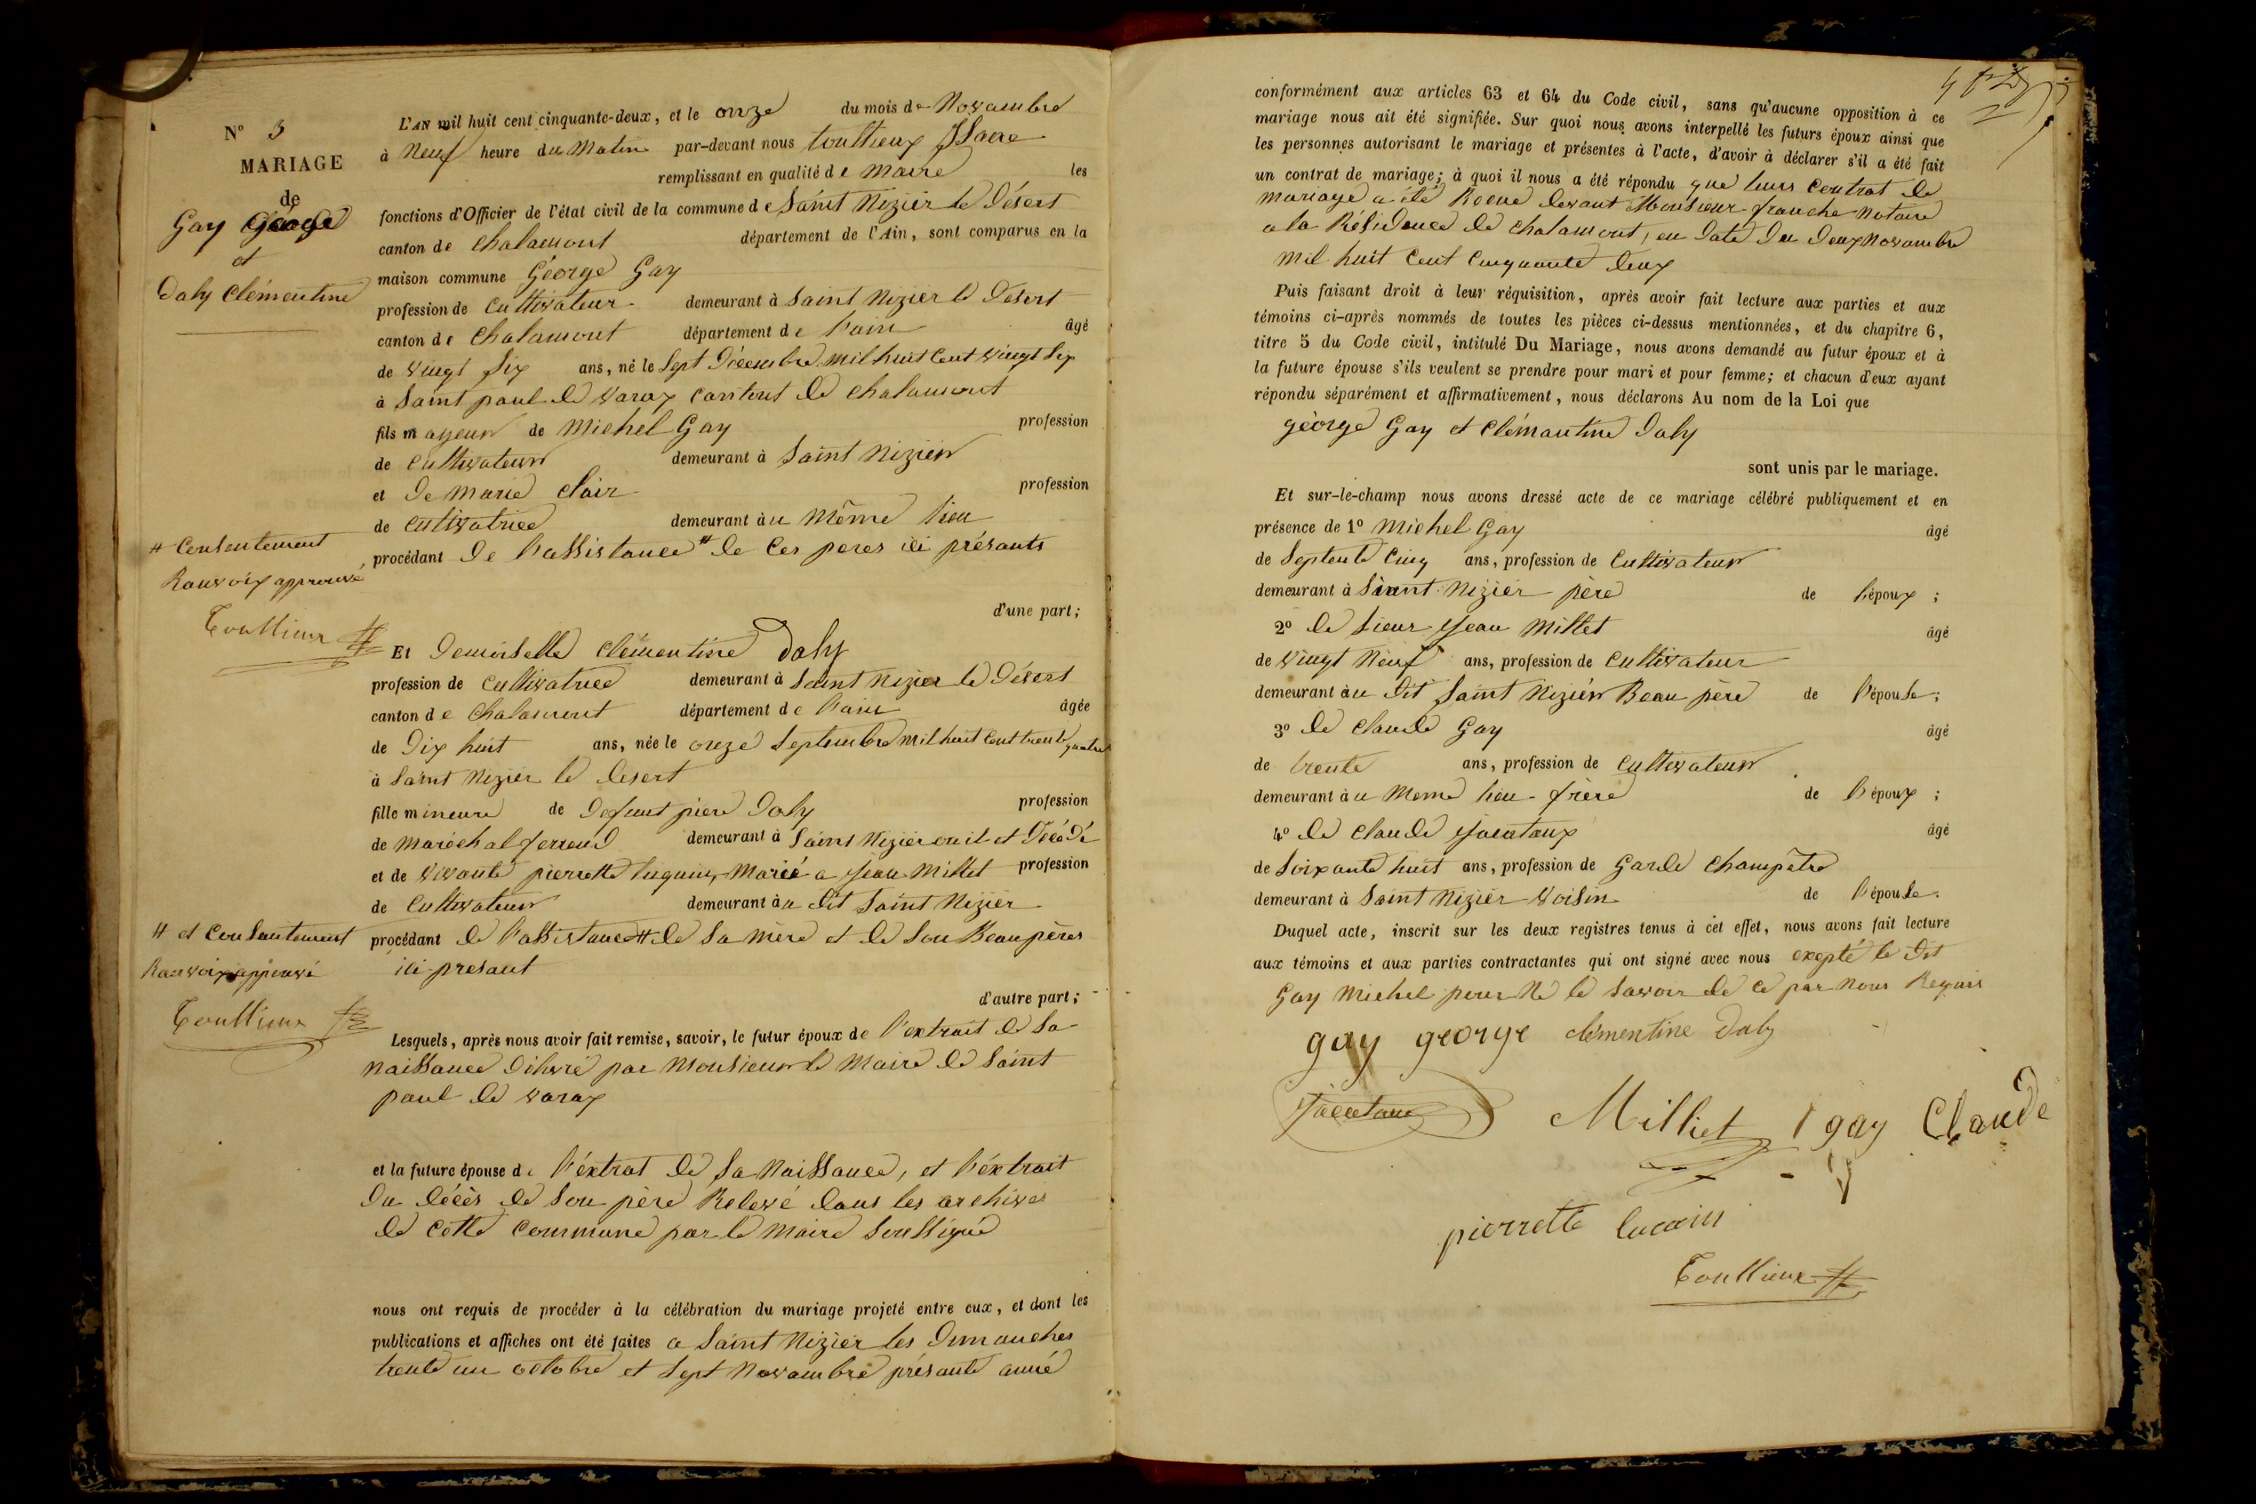 N° 3
MARIAGE
de
Gay George
et
Daly Clémentine
L'AN mil huit cent cinquante-deux, et le onze du mois de Novambre
à Neuf heure du Matin par-devant nous Toullieux
remplissant en qualité de Maire les
fonctions d'Officier de l'état civil de la commune de Saint Nizier le Désert
canton de Chalamont département de l'Ain, sont comparus en la
maison commune George Gay
profession de Cultivateur demeurant à Saint Nizier le Désert
canton de Chalamont département de l'ain âgé
de vingt six ans, né le Sept Décembre mil huit Cent vingt Six
à Saint paul de varax Canton de Chalamont
fils mayeur de Michel Gay profession
de Cultivateur demeurant à Saint Nizier
et de Marie Clair profession
de Cultivatrice demeurant au Même lieu
procédant De l'assistance # de Ces peres ici présants
# Consentement
Ranvoix approuvé
Toullieux
d'une part;
Et Demoiselle Clémentine Daly
profession de Cultivatrice demeurant à Saint Nizier le Désert
canton de Chalamont département de l'ain âgée
de Dix huit ans, née le onze Septembre mil huit Cent trente quatre
à Saint Nizier le desert
fille mineure de Defunt piere Daly profession
de Maréchal ferrend demeurant à Saint Nizier ou il et Décédé
et de vivante pierrette luquin, Mariée a Jean Millet profession
de Cultivateur demeurant au dit Saint Nizier
procédant de l'assistance # de Sa Mère et de Son Beau pères
ici présant
# et Consantement
Ranvoix approuvé
Toullieux
d'autre part;
Lesquels, après nous avoir fait remise, savoir, le futur époux de l'extrait de Sa
naissance délivré par Monsieur le Maire de Saint
paul de varax
et la future épouse de l'éxtrat de Sa Naissance, et l'éxtrait
Du décès de Son père Relevé dans les archives
de Cette Commune par le Maire Soussigné
nous ont requis de procéder à la célébration du mariage projeté entre eux, et dont les
publications et affiches ont été faites a Saint Nizier les Dimanches
trente un octobre et Sept Novambre présante anné
conformément aux articles 63 et 64 du Code civil, sans qu'aucune opposition à ce
mariage nous ait été signifiée. Sur quoi nous avons interpellé les futurs époux ainsi que
les personnes autorisant le mariage et présentes à l'acte, d'avoir à déclarer s'il a été fait
un contrat de mariage; à quoi il nous a été répondu que leurs Contrat de
Mariage a été Recue devant Monsieur franche Notaire
a la Résidence de Chalamont, en Date du Deux Novambre
Mil huit Cent Cinquante deux
Puis faisant droit à leur réquisition, après avoir fait lecture aux parties et aux
témoins ci-après nommés de toutes les pièces ci-dessus mentionnées, et du chapitre 6,
titre 5 du Code civil, intitulé Du Mariage, nous avons demandé au futur époux et à
la future épouse s'ils veulent se prendre pour mari et pour femme; et chacun d'eux ayant
répondu séparément et affirmativement, nous déclarons Au nom de la Loi que
géorge Gay et Clémantine Daly
sont unis par le mariage.
Et sur-le-champ nous avons dressé acte de ce mariage célébré publiquement et en
présence de 1° Michel Gay âgé
de Septente Cinq ans, profession de Cultivateur
demeurant à Saint Nizier père de l'époux;
2° de Sieur Jean Millet âgé
de vingt Neuf ans, profession de Cultivateur
demeurant au Dit Saint Nizier Beau père de l'épouse;
3° de Claude Gay âgé
de trente ans, profession de Cultivateur
demeurant au Meme lieu frère de l'époux;
4° de Claude Jacutaux âgé
de Soixante huit ans, profession de Garde Champêtre
demeurant à Saint Nizier Voisin de l'épouse.
Duquel acte, inscrit sur les deux registres tenus à cet effet, nous avons fait lecture
aux témoins et aux parties contractantes qui ont signé avec nous exepté le Dit
Gay Michel pour Ne le Savoir de Ce par Nous Requis
gay george Clémentine Daly
Milliet gay Claude
pierrette
Toullieux